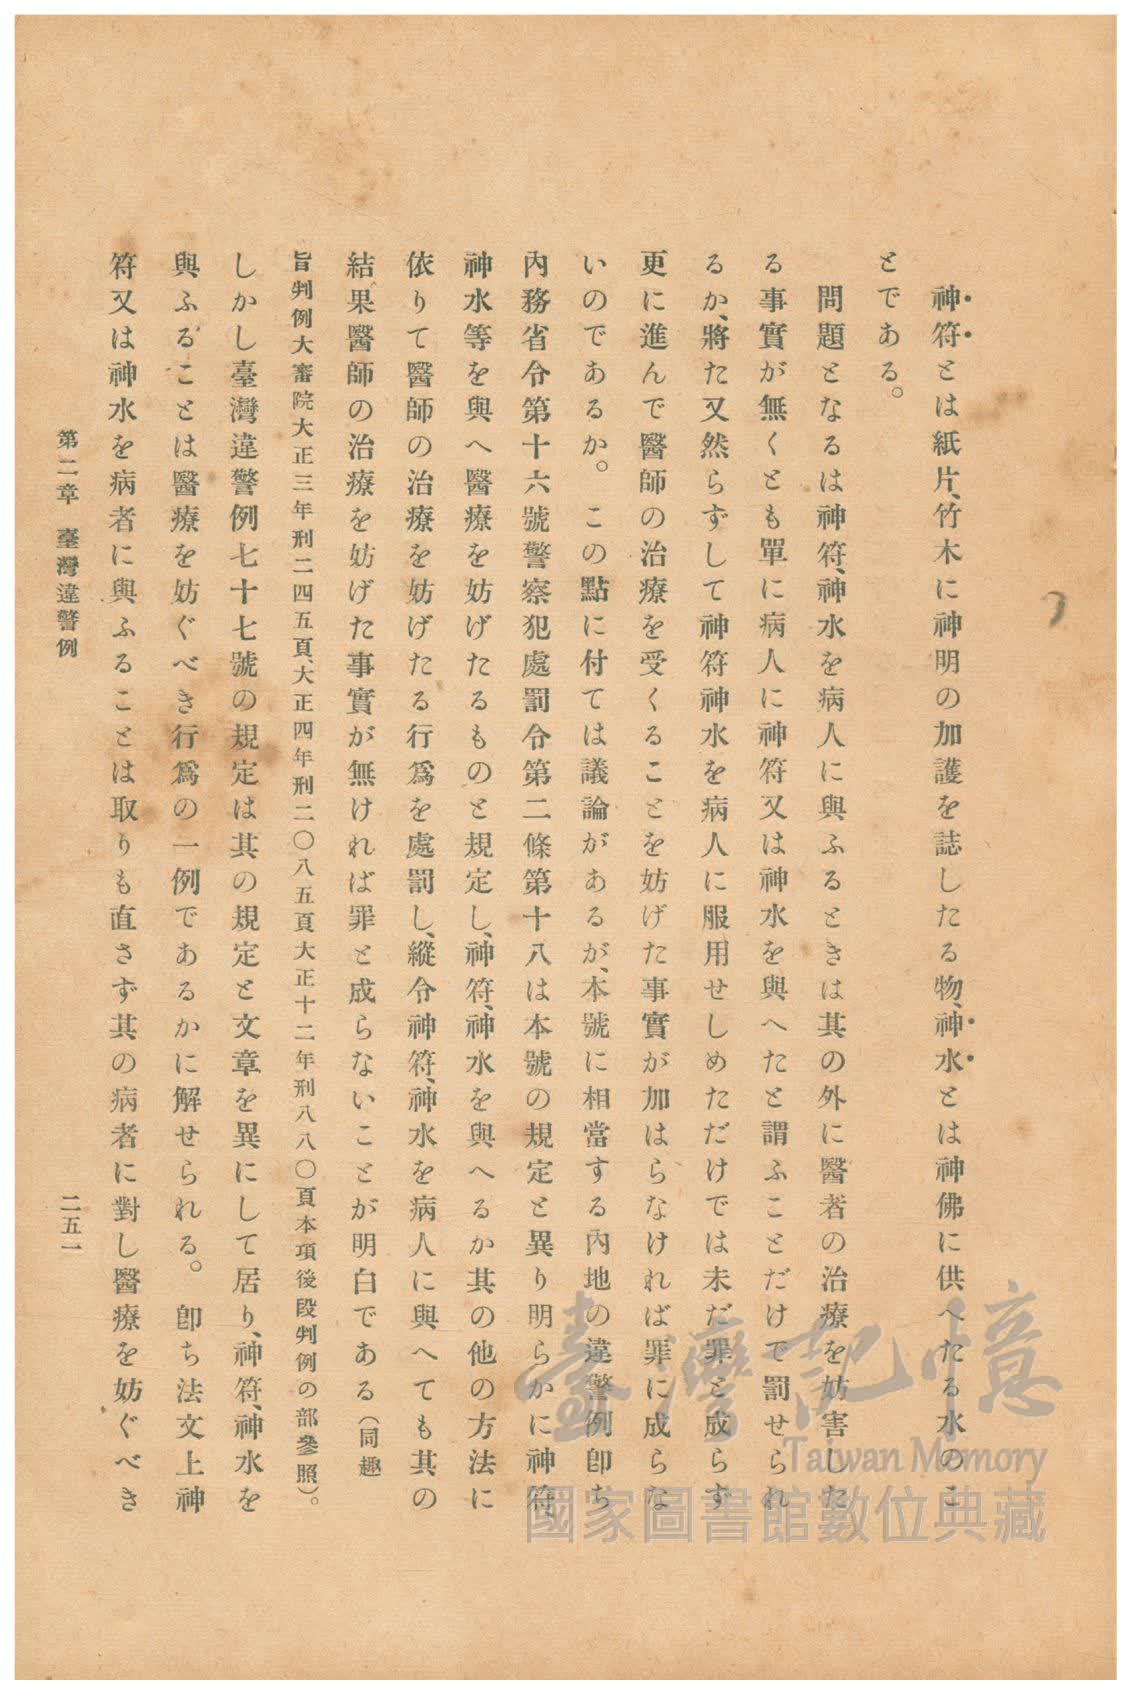 神符とは紙片、竹木に神明の加護を誌したる物、神水とは神佛に供へたる水のこ
とである。
問題となるは神符、神水を病人に與ふるときは其の外に醫者の治療を妨害した
る事實が無くとも單に病人に神符又は神水を與へたと謂ふことだけで罰せられ
るか、將た又然らずして神符神水を病人に服用せしめただけでは未だ罪と成らず
更に進んで醫師の治療を受くることを妨げた事實が加はらなければ罪に成らな
いのであるか。この點に付ては議論があるが、本號に相當する內地の違警例卽ち
內務省令第十六號警察犯處罰令第二條第十八は本號の規定と異り明らかに神符
神水等を與へ醫療を妨げたるものと規定し、神符、神水を與へるか其の他の方法に
依りて醫師の治療を妨げたる行爲を處罰し、縱令神符、神水を病人に與へても其の
結果醫師の治療を妨げた事實が無ければ罪と成らないことが明白である(同趣
旨判例大審院大正三年刑二四五頁、大正四年刑二〇八五頁大正十二年刑八八〇頁本項後段判例の部參照)。
しかし臺灣違警例七十七號の規定は其の規定と文章を異にして居り、神符、神水を
與ふることは醫療を妨ぐべき行爲の一例であるかに解せられる。卽ち法文上神
符又は神水を病者に與ふることは取りも直さず其の病者に對し醫療を妨ぐべき
第二章 臺灣違警例
二五一
臺灣記憶
Taiwan Memory
國家圖書館數位典藏